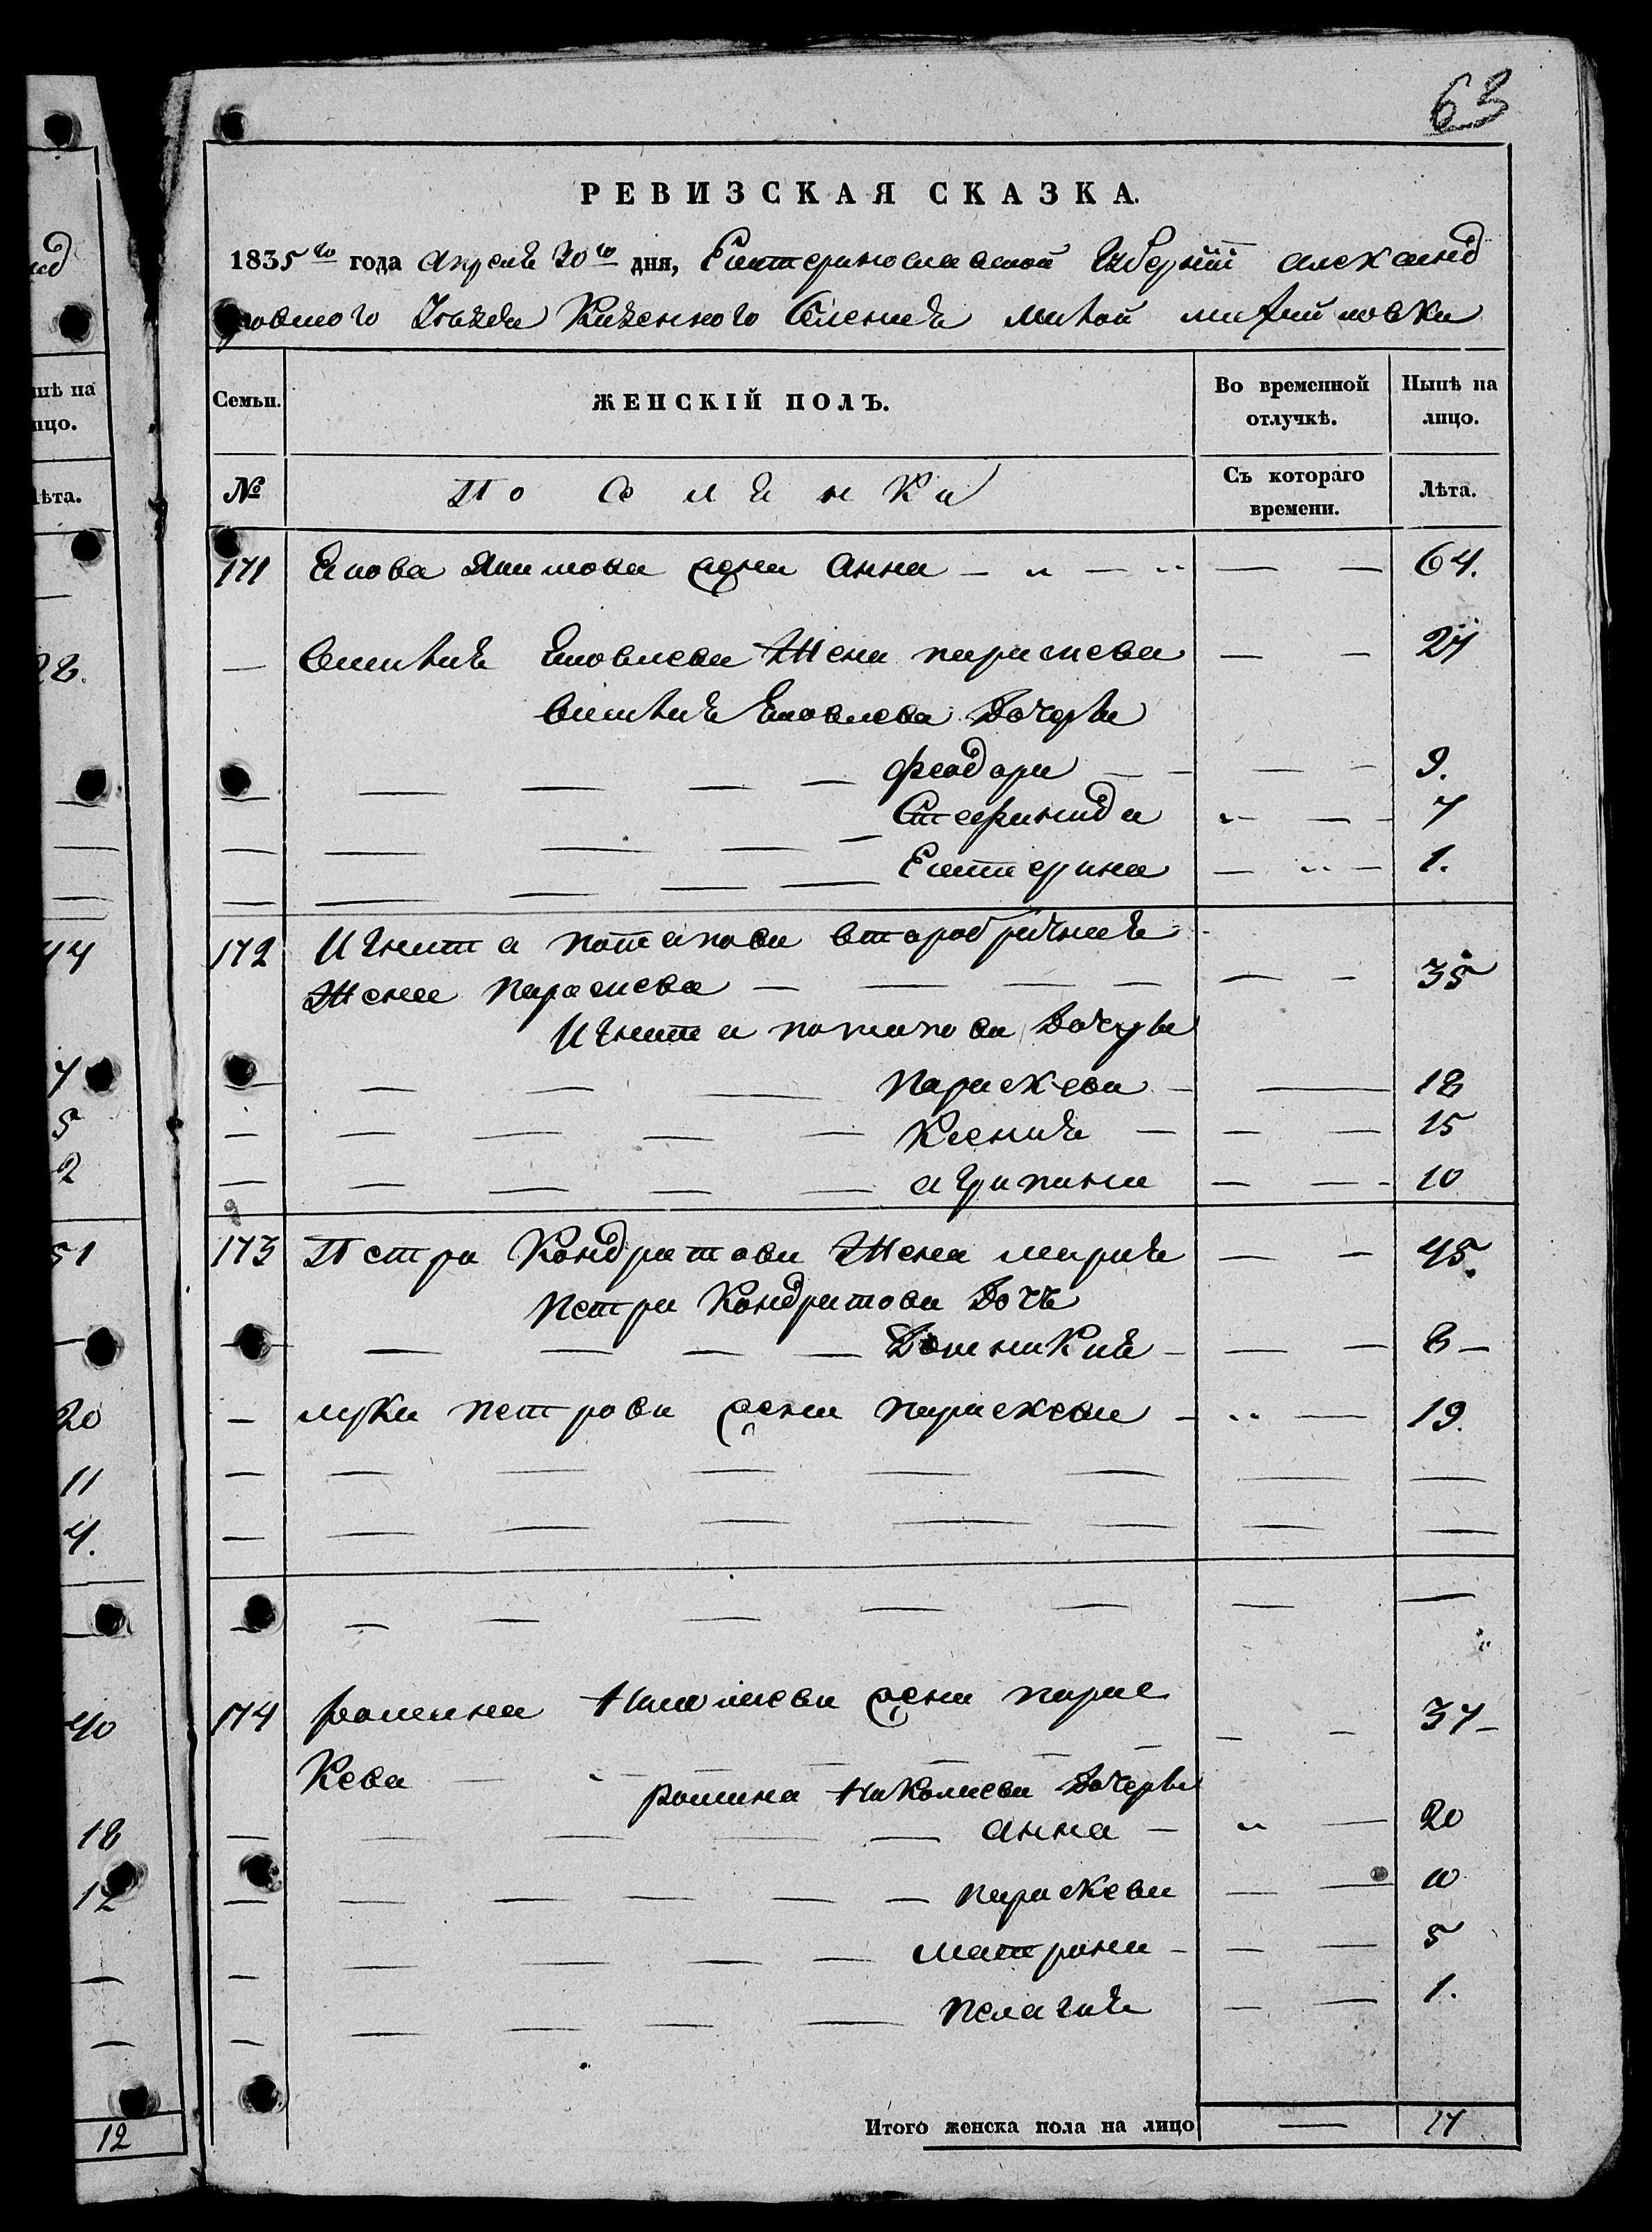 63
РЕВИЗСКАЯ СКАЗКА.
1835го года апреля 20го дня, Екатеринославской Губернии александ
ровского Уезда Казенного Селения малой михайловки
Семьи. ЖЕНСКІЙ ПОЛЪ. Во временной отлучкѣ. Нынѣ на лицо.
№ По Селянки Съ котораго времени. Лѣта.
171 Якова Акимова жена анна 64.
Яковлева Жена параскева 27
Яковлева Дочери
феодора 9.
Стефанида 7
Екатерина 1.
172 Игната потапова втаробрачная
Жена параскева 35
Игната потапова Дочери
параскева 18
Ксения 15
агрипина 10
173 Петра Кондратова Жена мария 45.
петра Кондратова Дочь
Домникия 8
луки петрова жена параскева 19.
174 романа Николаева жена парас 37
Кева
романа Николаева Дочери
анна 20
параскева 10
матрона 5
пелагия 1.
Итого женска пола на лицо 17
нѣ на
лицо.
Лѣта.
28.
44
7
5
2
51
20
11
4.
40
18
12
12